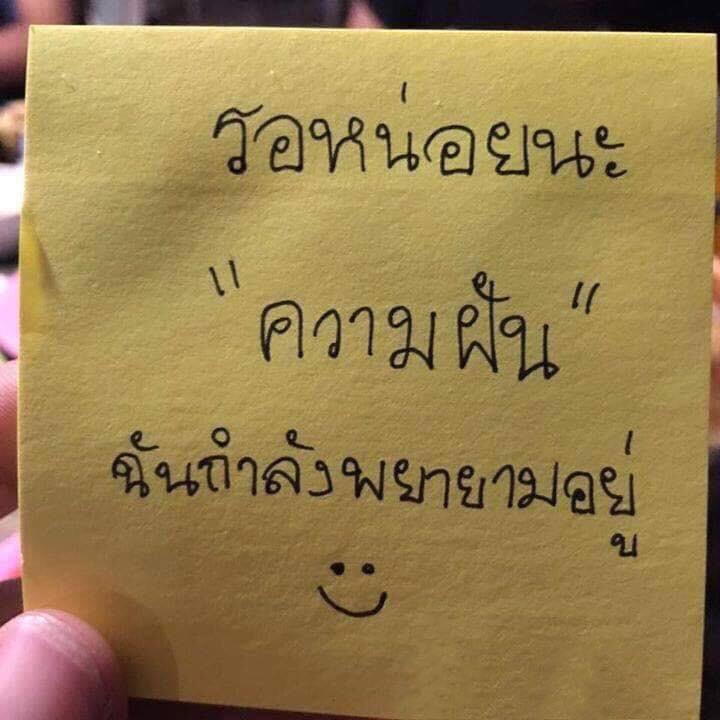 รอหน่อยนะ
"ความฝัน"
ฉันกำลังพยายามอยู่